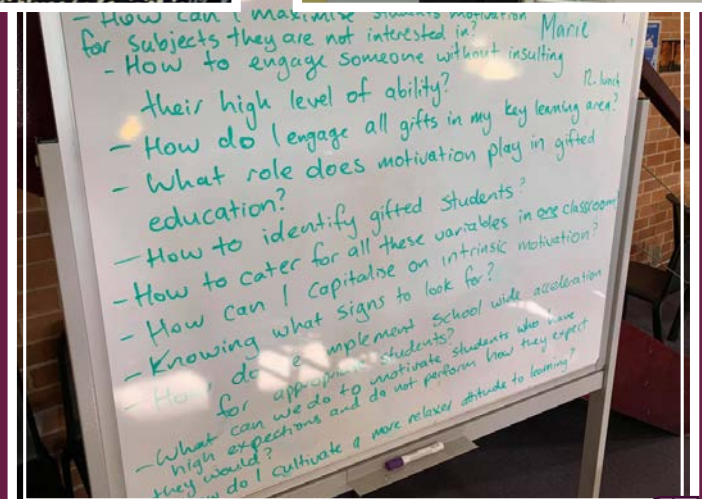 - How can I maximise students motivation
for subjects they are not interested in?
Marie
- How to engage someone without insulting
their high level of ability?
12. lunch
- How do I engage all gifts in my key learning area?
- What role does motivation play in gifted
education?
- How to identify gifted students?
- How to cater for all these variables in one classroom?
- How can I capitalise on intrinsic motivation?
- Knowing what signs to look for?
- How do implement School wide acceleration
for appropriate students?
- What can we do to motivate students who have
high expections and do not perform how they expect
they would?
do I cultivate a more relaxed attitude to learning?